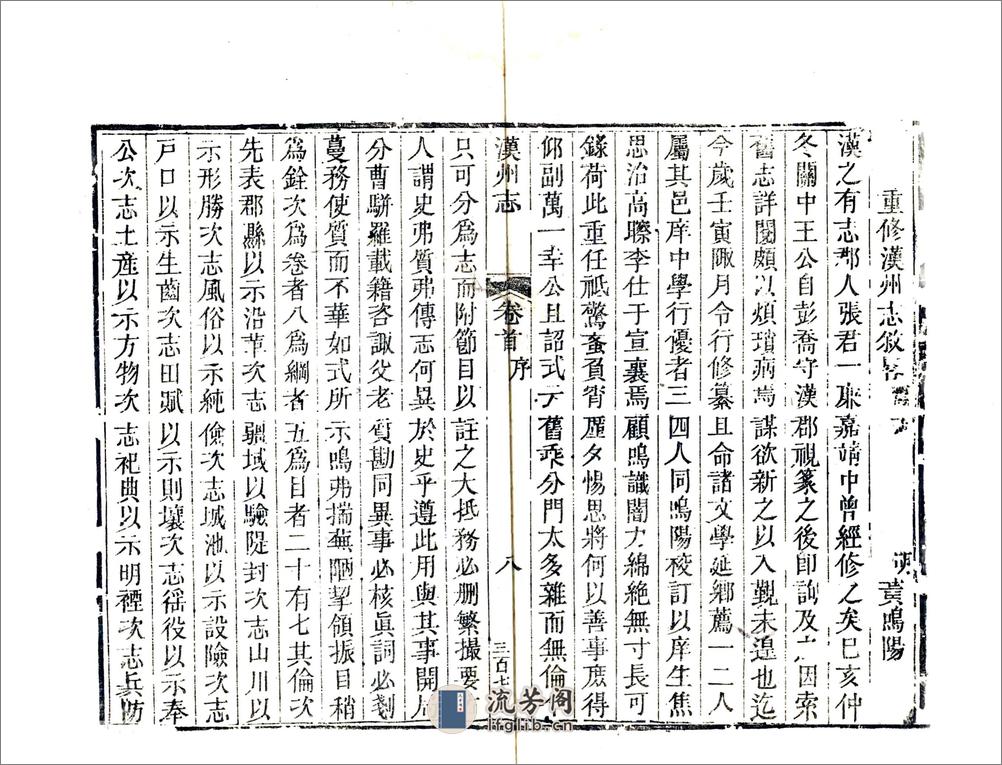 重修漢州志敘
黃鳴陽
漢之有志郡人張君一
嘉靖中曾經修之矣已亥仲
冬關中王公自彭喬守漢郡視篆之後卽詢及之因索
舊志詳閱頗以煩瑣病焉謀欲新之以入覲未遑也迄
今歲壬寅陬月令行修纂且命諸文學延鄉薦一二人
屬其邑庠中學行優者三四人同鳴陽校訂以庠生焦
思治高聯李仕于宣襄焉顧鳴識闇力綿絕無寸長可
錄荷此重任祇驚蚤負宵歷夕惕思將何以善事庶得
仰副萬一幸公且詔式于舊乘分門太多雜而無倫
漢州志
卷首
序
八
三百七
只可分爲志而附節目以註之大抵務必删繁撮要
人謂史弗質弗傳志何異於史乎遵此用與其事開局
分曹駢羅載籍咨諏父老質勘同異事必核眞詞必剗
蔓務使質而不華如式所示鳴弗揣蕪陋挈領振目稍
爲銓次爲卷者八爲綱者五爲目者二十有七其倫次
先表郡縣以示沿革次志疆域以驗隄封次志山川以
示形勝次志風俗以示純儉次志城池以示設險次志
戸口以示生齒次志田賦以示則壤次志徭役以示奉
公次志土産以示方物次志祀典以示明禋次志兵防
流芳阁
lfglib.cn